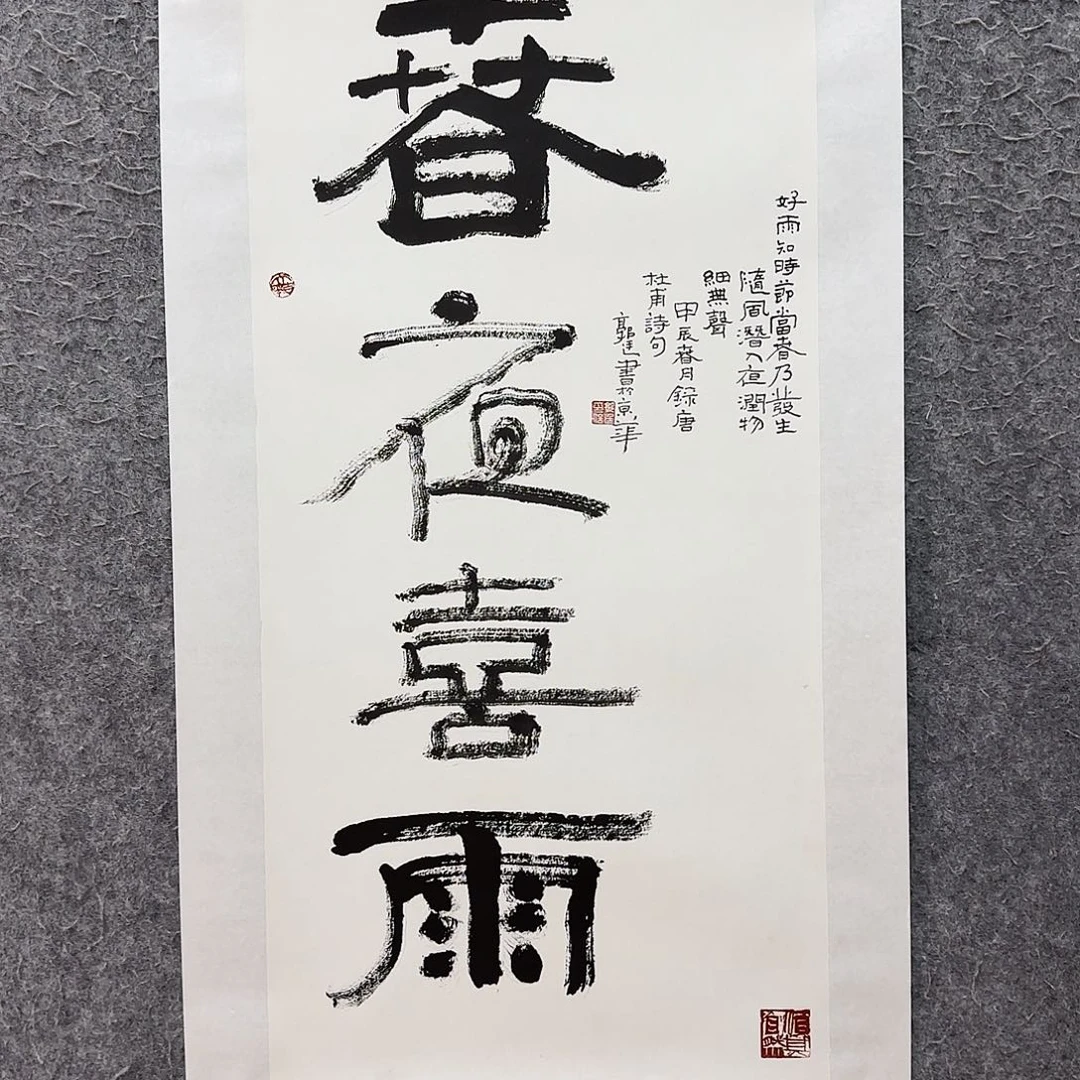 春夜喜雨
好雨知時節當春乃發生
隨風潛入夜潤物
細無聲
甲辰春月錄唐
杜甫詩句
郭書於京華
順其自然